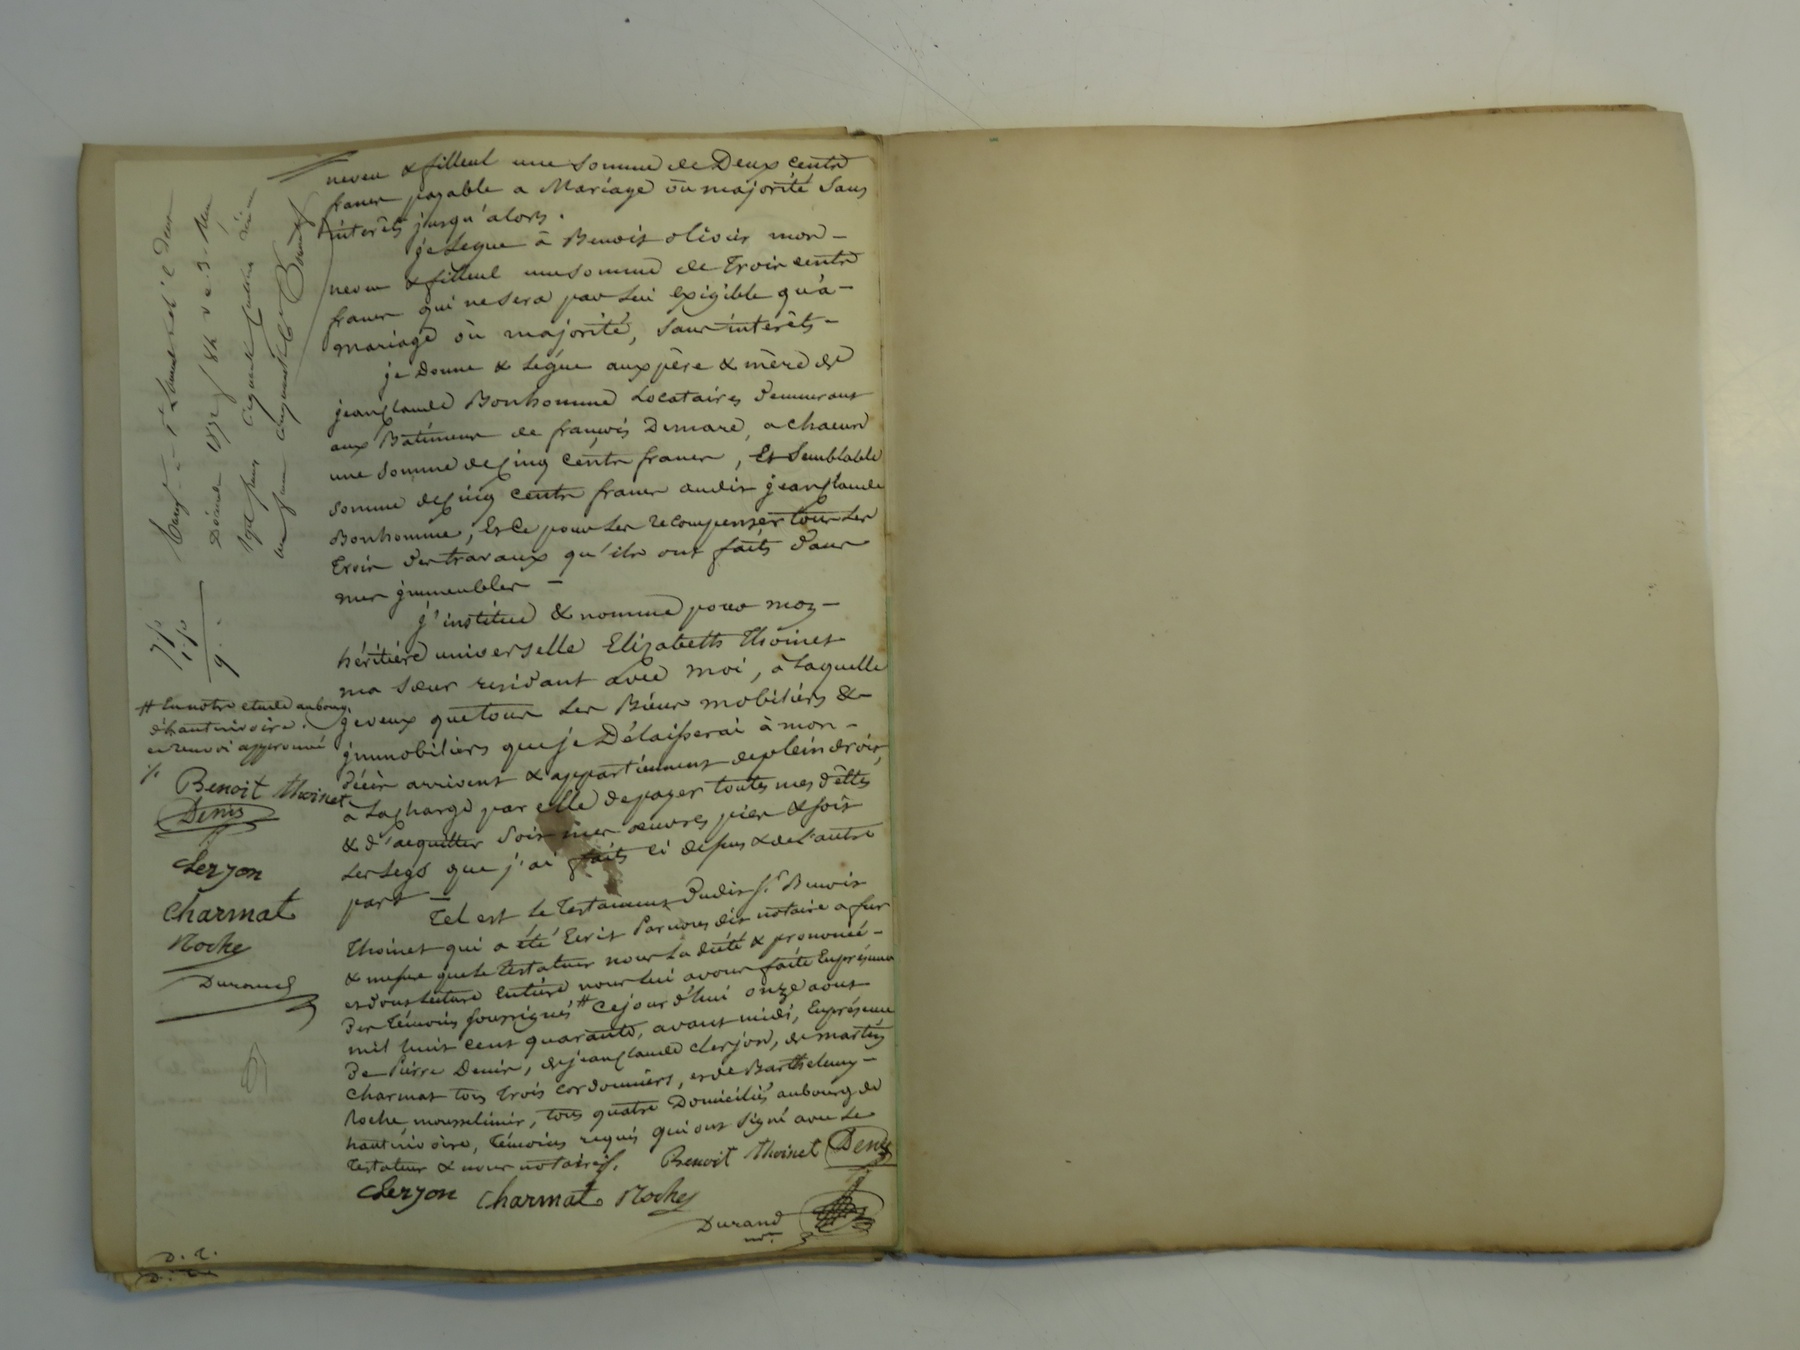 neveu & filleul une somme de Deux cents
francs payable a Mariage ou majorité Sans
interêts jusqu'alors.
je Legue à Benoit olivier mon -
neveu & filleul une somme de trois cents
francs qui ne sera par Lui exigible qu'à -
mariage ou majorité, sans interêts -
je Donne & Légue aux père & mère de
jean claude Bonhomme Locataires demeurant
aux Batimens de françois Demare, a chacun
une somme de cinq cents francs, Et Semblable
somme de cinq cents francs audit jean claude
Bonhomme, Et Ce pour Les recompenser tous Les
trois des travaux qu'ils ont faits dans
mes jmmeubles -
j'institue & nomme pour mon -
héritière universelle Elizabeth Thoinet
ma Sœur residant avec moi, à Laquelle
je veux que tous Les Biens mobiliers &
jmmobiliers que je Délaisserai à mon -
décès arrivent & appartiennent de plein droit,
a La charge par elle de payer toutes mes dêttes
& d'acquitter soit mes œuvres pies & soit
Les Legs que j'ai faits ci dessus & de L'autre
part -
Tel est Le Testament dudit S.r Benoit
Thoinet qui a été Ecrit Par nous dit notaire a fur
& mesure que Le testateur nous La dicté & prononcé -
et dont Lecture Entière nous Lui avons faite En présence
des témoins soussignés # Cejourd'hui onze aout
mil huit cent quarante, avant midi, En présence
de Pierre Denis, de jean claude Clerjon, de martin
Charmat tous trois cordonniers, et de Barthelemy -
Roche, mousselinier, tous quatre Domiciliés au bourg de
hauterivoire, témoins requis qui ont signé avec Le
testateur & nous notaire.
Benoit thoinet Denis
Clerjon Charmat Roche
Durand
# En notre etude au bourg
d'hauterivoire.
en renvoi approuvé
Benoit thoinet
Denis
Clerjon
Charmat
Roche
Durand
D. T.